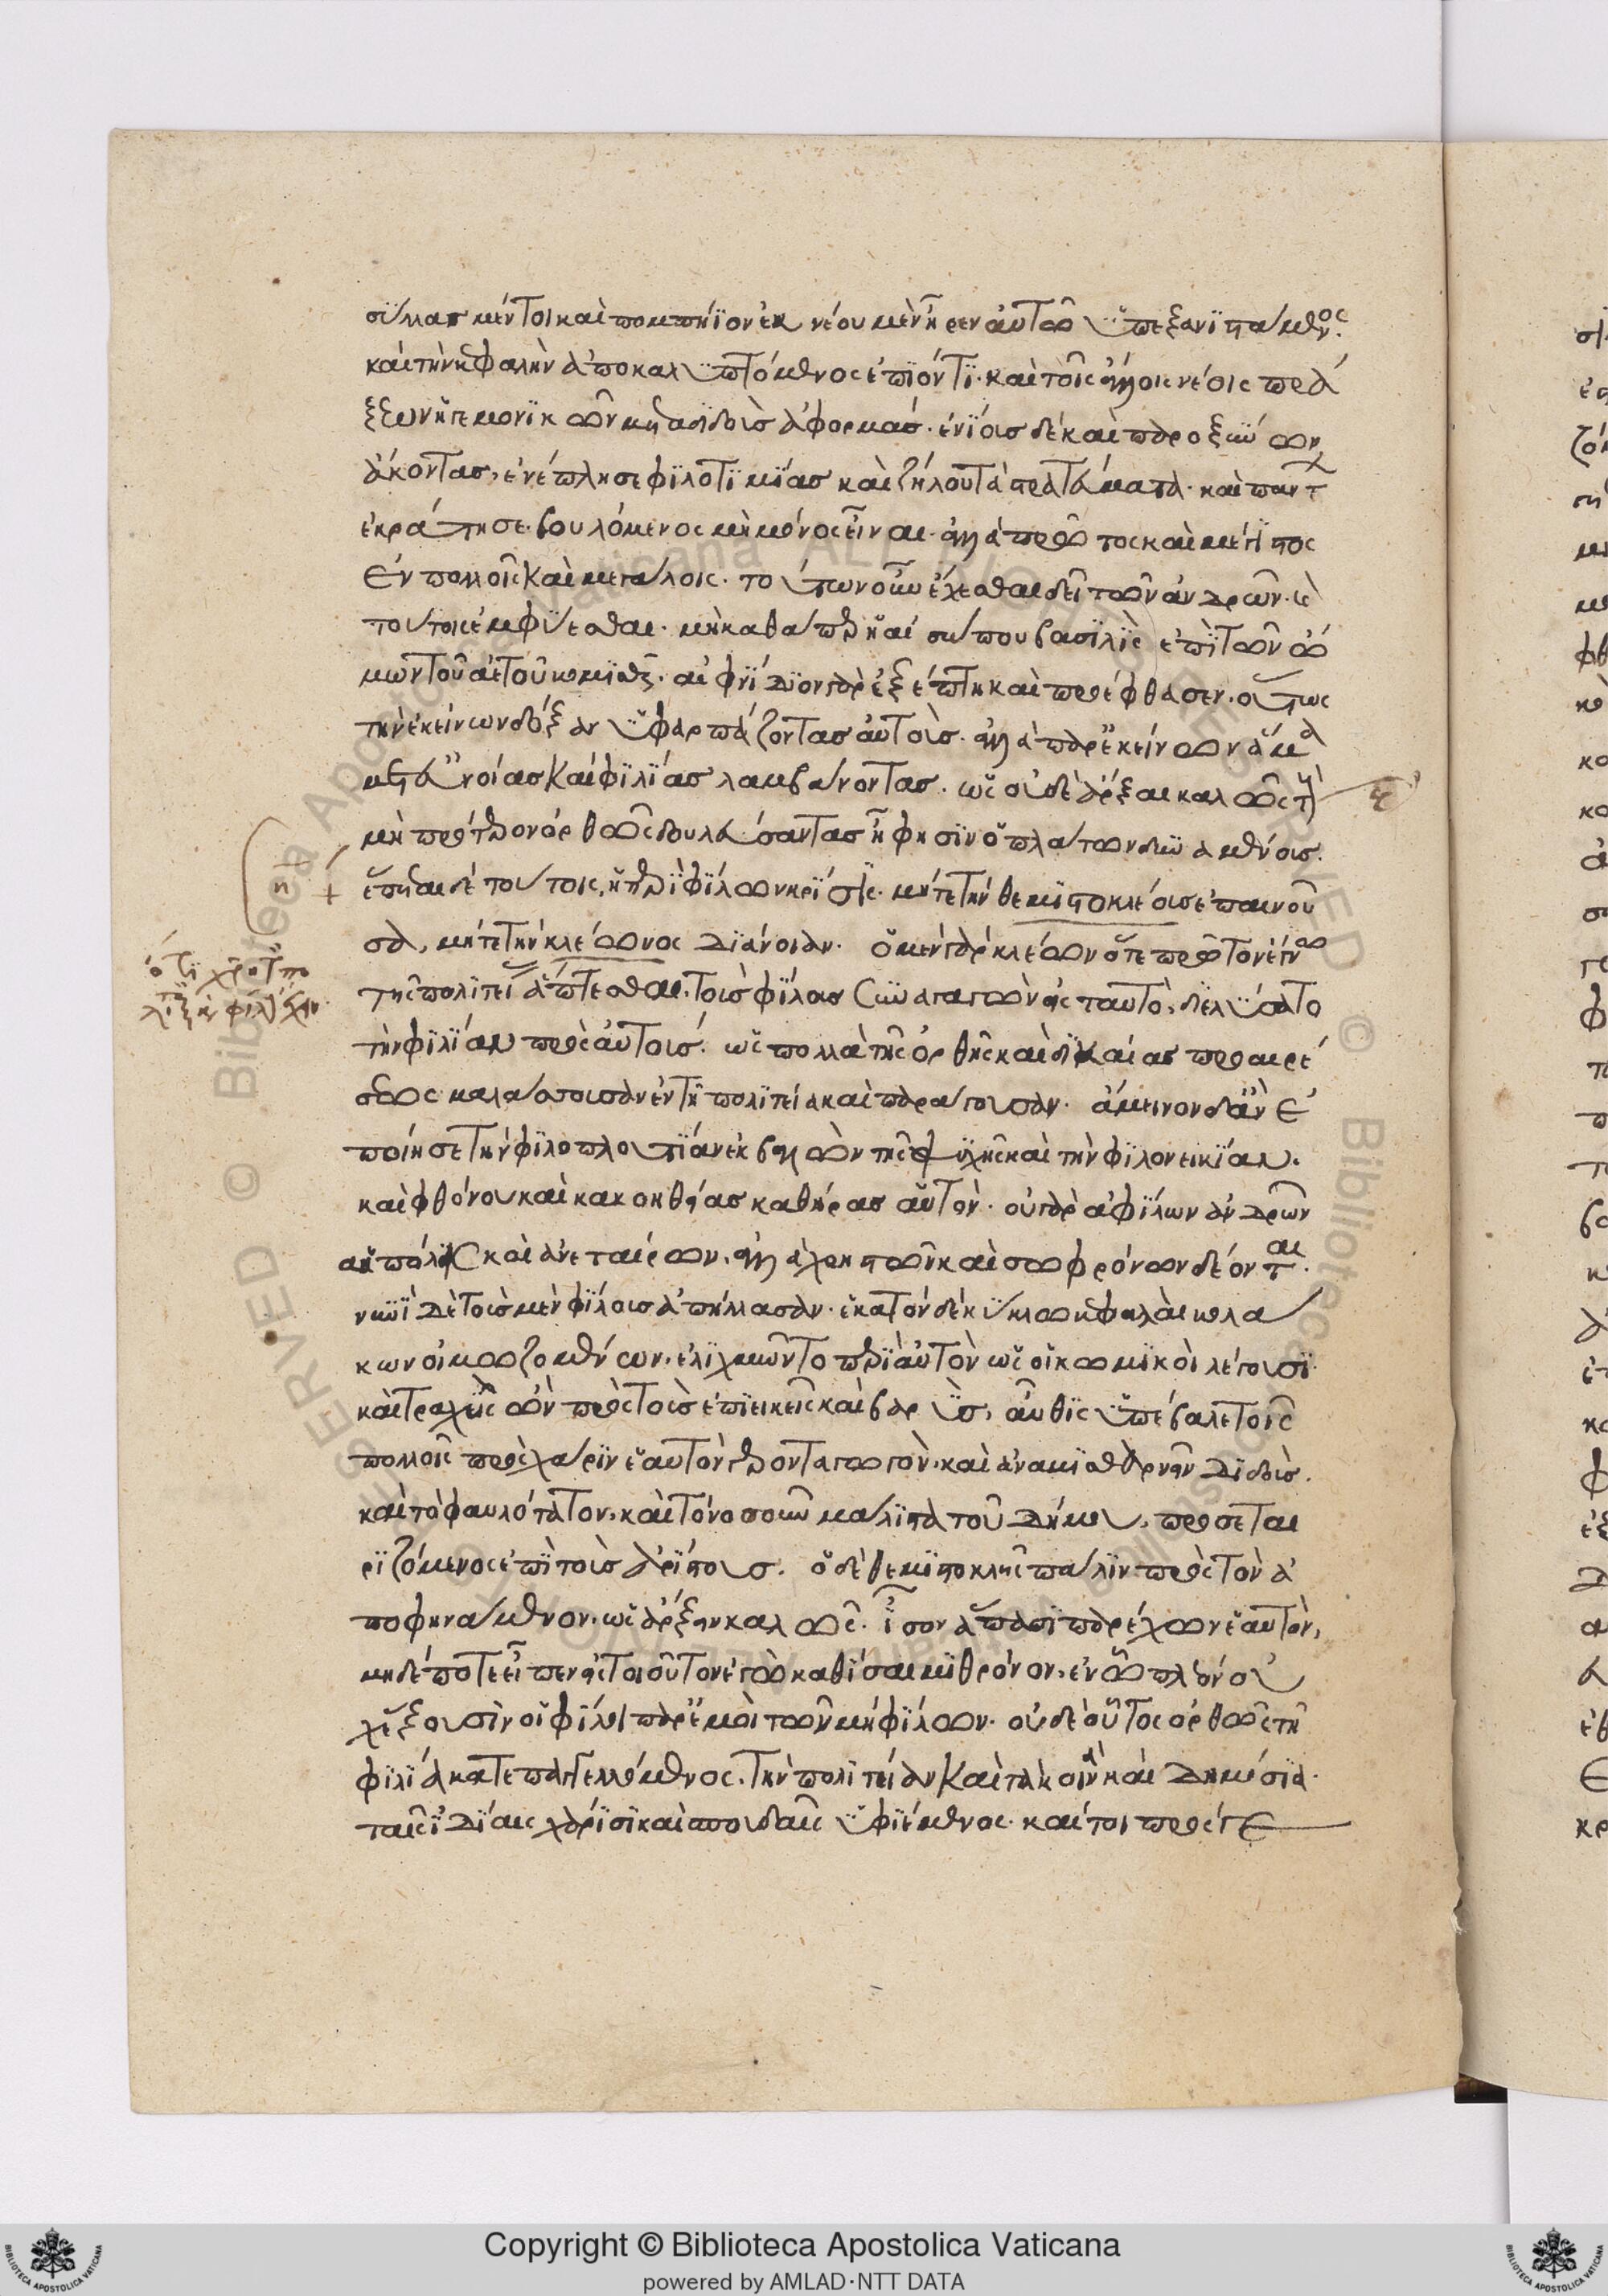 σύλλας μέντοι καὶ πομπήϊον ἐκ νέου μὲν ἦρεν αὐτῶ ὑπεξανιστάμενος.
καὶ τὴν κεφαλὴν ἀποκαλυπτόμενος ἐπιόντι· καὶ τοῖς ἄλλοις νέοις πρά
ξεων ἡγεμονικῶν μεταδιδοὺς ἀφορμάς· ἐνίους δὲ καὶ παροξύνων
ἄκοντας, ἐνέπλησε φιλοτιμίας καὶ ζήλου τὰ στρατεύματα· καὶ πάντ
ἐκράτησε. βουλόμενος μὴ μόνος εἶναι. ἀλλὰ πρῶτος καὶ μέγιστος
ἐν πολλοῖς καὶ μεγάλοις. τούτων οὖν ἔχεσθαι δεῖ τῶν ἀνδρῶν. καὶ
τούτοις ἐμφύεσθαι. μὴ καθάπερ ἡ αἰσώπου βασιλὶς ἐπὶ τῶν ὤ
μων τοῦ ἀετοῦ κομισθεῖς. αἰφνίδιον γὰρ ἐξέπτη καὶ προέφθασεν. οὕτως
τὴν ἐκείνων δόξαν ὑφαρπάζοντας αὐτοὺς. ἀλλὰ παρ' ἐκείνων ἅμα
μετ' εὐνοίας καὶ φιλίας λαμβάνοντας. ὡς οὐδὲ ἄρξαι καλῶς τοὺς
μὴ πρότερον ὀρθῶς δουλεύσαντας ἧ φησὶν ὁ πλάτων δυναμένους.
ἕπεται δὲ τούτοις, ἡ περὶ φίλων κρίσις. μήτε τὴν θεμιστοκλέους ἐπαινοῦ
σα, μήτε τὴν κλέωνος διάνοιαν. ὁ μὲν γὰρ κλέων ὅτε πρῶτον ἔγνω
τῆς πολιτείας ἅπτεσθαι, τοὺς φίλους συναγαγὼν εἰς ταυτὸ, διελύσατο
τὴν φιλίαν πρὸς αὐτούς. ὡς πολλὰ τῆς ὀρθῆς καὶ δικαίας προαιρέ
σεως μαλάσσουσαν ἐν τῇ πολιτεία καὶ παράγουσαν. ἄμεινον δ' ἂν ἐ
ποίησε τὴν φιλοπλουτίαν ἐκβαλὼν τῆς ψυχῆς καὶ τὴν φιλονεικίαν.
καὶ φθόνου καὶ κακοηθείας καθήρας αὑτὸν. οὐ γὰρ ἀφίλων ἀνδρῶν
αἱ πόλεις καὶ ἀνεταίρων, ἀλλὰ χρηστῶν καὶ σωφρόνων δέονται.
νυνὶ δὲ τοὺς μὲν φίλους ἀπήλλασαν. ἑκατὸν δὲ κύκλω κεφαλαὶ κολά
κων οἰμωζομένων. ἐλιχμῶντο περὶ αὐτὸν ὡς οἱ κωμικοὶ λέγουσι.
καὶ τραχὺς ὢν πρὸς τοὺς ἐπιεικεῖς καὶ βαρὺς, αὖθις ὑπέβαλε τοῖς
πολλοῖς πρὸς χάριν ἑαυτὸν γεροντα γωγῶν. καὶ ἀναμισθαρνεῖν διδοὺς.
καὶ τὸ φαυλότατον, καὶ τὸ νοσοῦν μάλιστα τοῦ δήμου, προσεται
ριζόμενος ἐπὶ τοὺς ἀρίστους. ὁ δὲ θεμιστοκλῆς πάλιν πρὸς τὸν ἀ
ποφηνάμενον. ὡς ἄρξειν καλῶς. ἴσον ἅπασι παρέχων ἑαυτὸν,
μηδέποτε εἶπεν εἰς τοιοῦτον ἐγὼ καθίσαιμι θρόνον, ἐν ᾧ πλέον οὐ
χ ἕξουσὶν οἱ φίλοι παρ' ἐμοὶ τῶν μὴ φίλων. οὐδὲ οὗτος ὀρθῶς τῇ
φιλία κατεπαγγελλόμενος. τὴν πολιτείαν καὶ τὰ κοινὰ καὶ δημόσια.
ταῖς ἰδίαις χάρισι καὶ σπουδαῖς ὑφιέμενος. καίτοι πρός γε